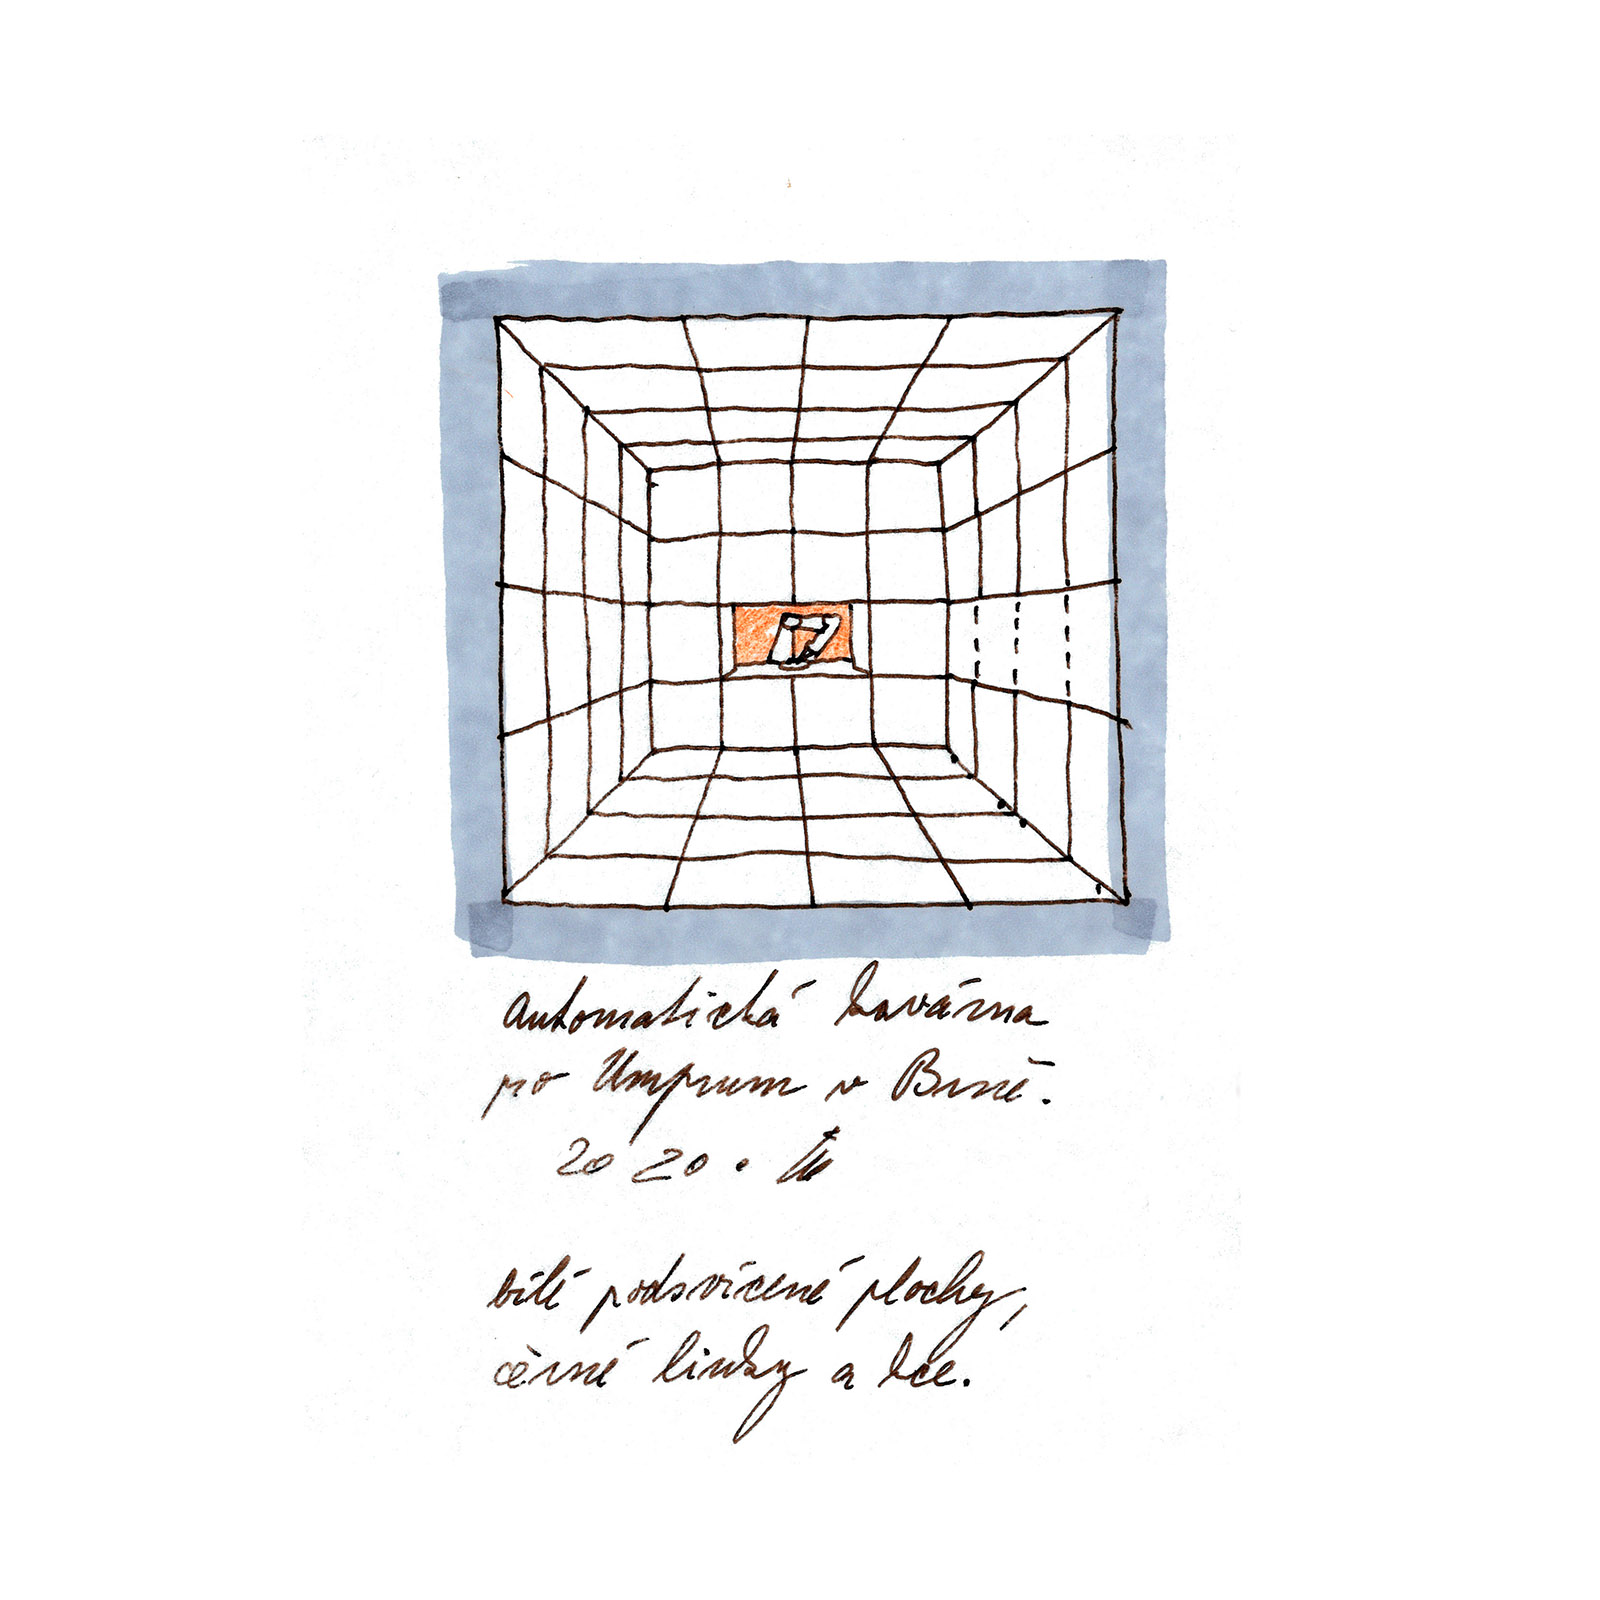 automatická kavárna
pro Umprum v Brně.
2020.
bílé podsvícené plochy,
černé linky a kce.